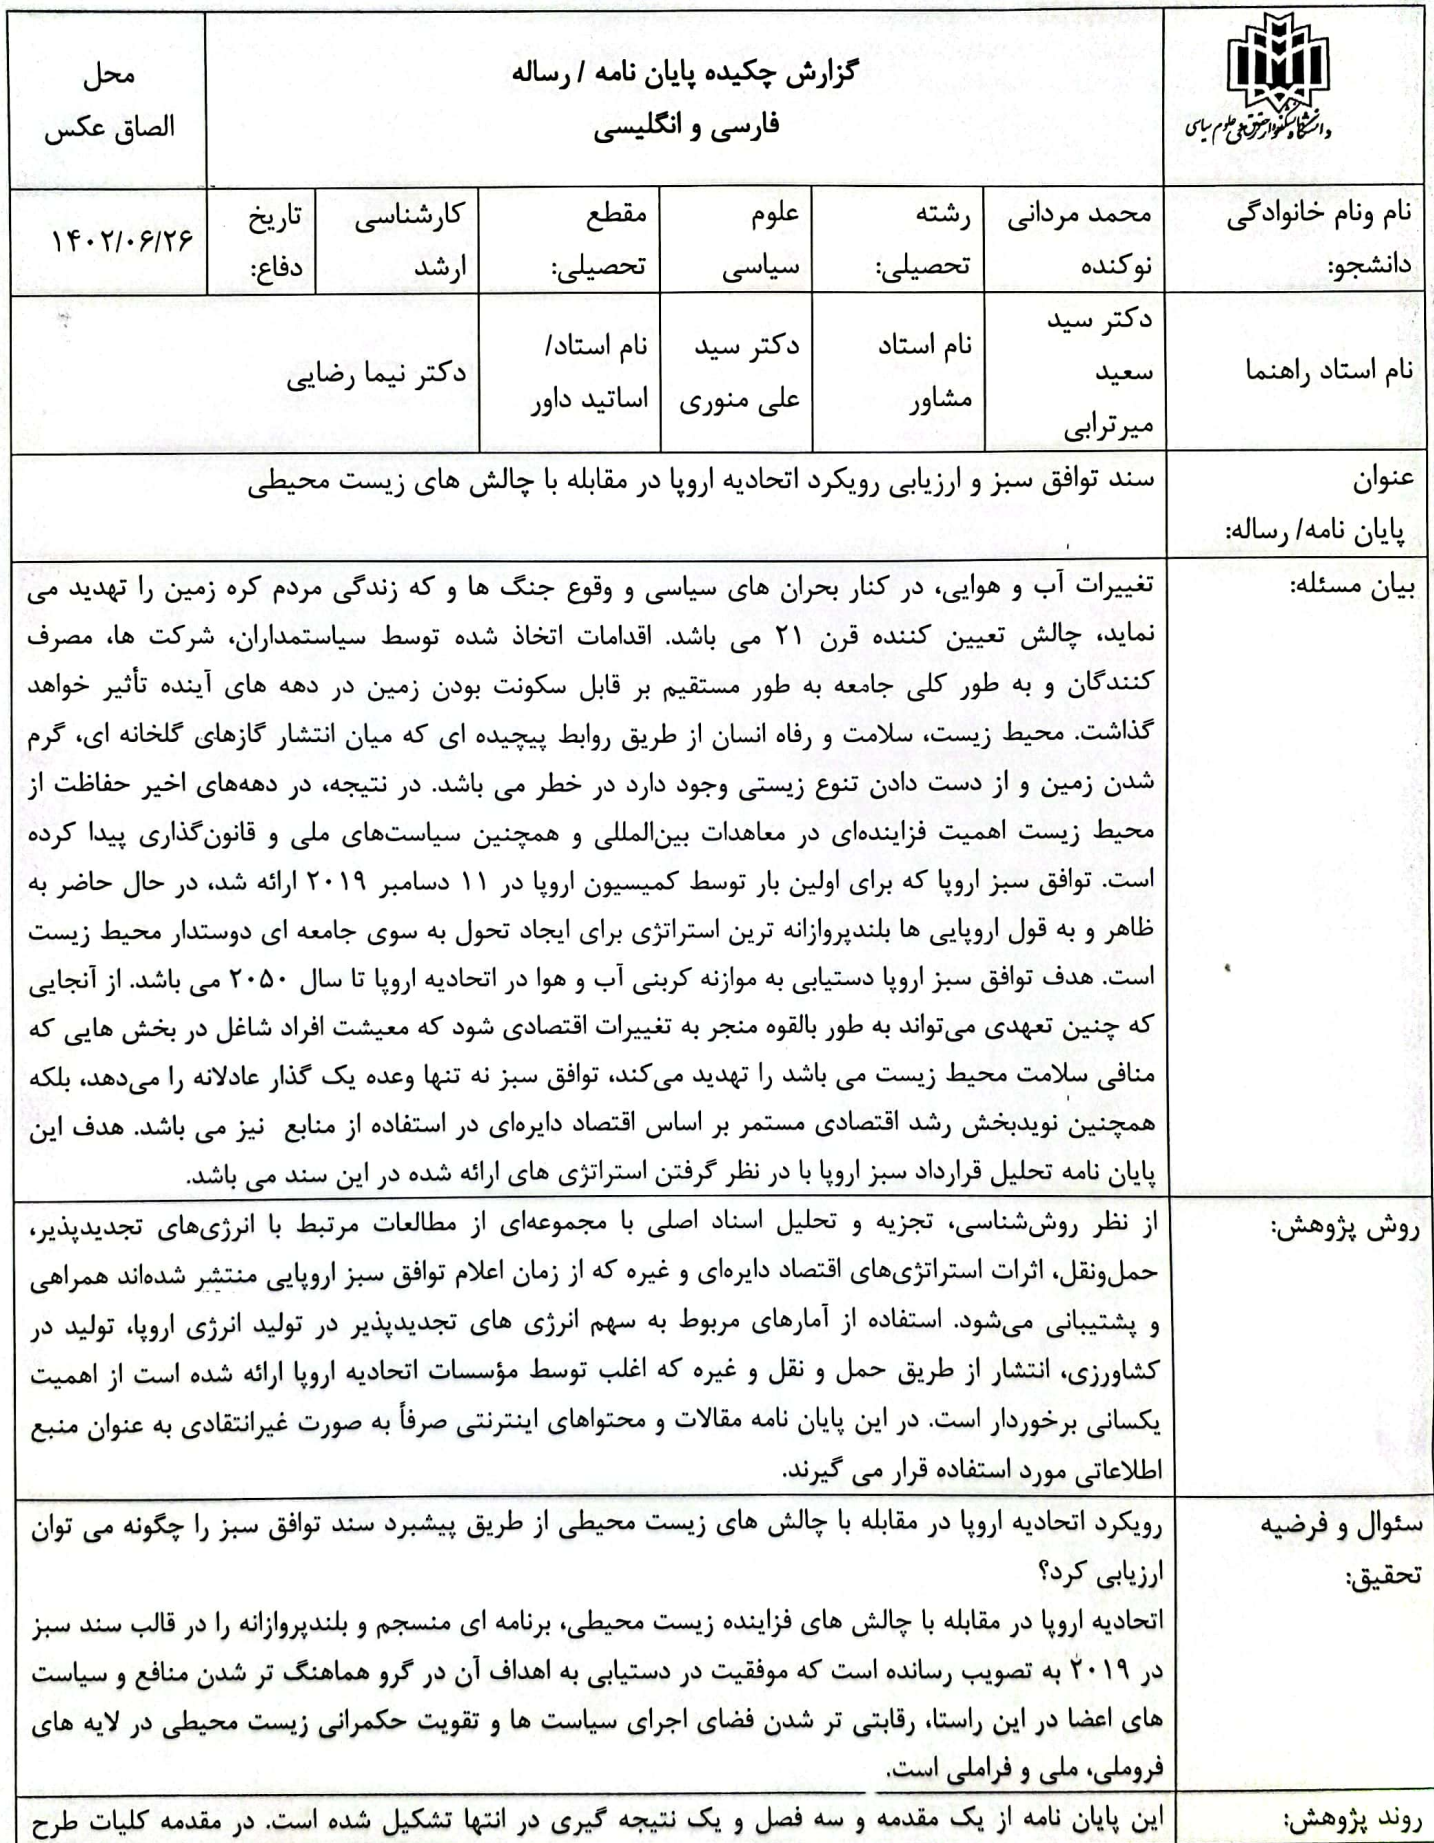 گزارش چکیده پایان نامه / رساله
فارسی و انگلیسی
محل
الصاق عکس
نام ونام خانوادگی
دانشجو:
محمد مردانی
نوکنده
رشته
تحصیلی:
علوم
سیاسی
مقطع
تحصیلی:
کارشناسی
ارشد
تاریخ
دفاع:
۱۴۰۲/۰۶/۲۶
نام استاد راهنما
دکتر سید
سعید
میرترابی
نام استاد
مشاور
دکتر سید
علی منوری
نام استاد/
اساتید داور
دکتر نیما رضایی
عنوان
پایان نامه/ رساله:
سند توافق سبز و ارزیابی رویکرد اتحادیه اروپا در مقابله با چالش های زیست محیطی
بیان مسئله:
تغییرات آب و هوایی، در کنار بحران های سیاسی و وقوع جنگ ها و که زندگی مردم کره زمین را تهدید می
نماید، چالش تعیین کننده قرن ۲۱ می باشد. اقدامات اتخاذ شده توسط سیاستمداران، شرکت ها، مصرف
کنندگان و به طور کلی جامعه به طور مستقیم بر قابل سکونت بودن زمین در دهه های آینده تأثیر خواهد
گذاشت. محیط زیست، سلامت و رفاه انسان از طریق روابط پیچیده ای که میان انتشار گازهای گلخانه ای، گرم
شدن زمین و از دست دادن تنوع زیستی وجود دارد در خطر می باشد. در نتیجه، در دهه‌های اخیر حفاظت از
محیط زیست اهمیت فزاینده‌ای در معاهدات بین‌المللی و همچنین سیاست‌های ملی و قانون‌گذاری پیدا کرده
است. توافق سبز اروپا که برای اولین بار توسط کمیسیون اروپا در ۱۱ دسامبر ۲۰۱۹ ارائه شد، در حال حاضر به
ظاهر و به قول اروپایی ها بلندپروازانه ترین استراتژی برای ایجاد تحول به سوی جامعه ای دوستدار محیط زیست
است. هدف توافق سبز اروپا دستیابی به موازنه کربنی آب و هوا در اتحادیه اروپا تا سال ۲۰۵۰ می باشد. از آنجایی
که چنین تعهدی می‌تواند به طور بالقوه منجر به تغییرات اقتصادی شود که معیشت افراد شاغل در بخش هایی که
منافی سلامت محیط زیست می باشد را تهدید می‌کند، توافق سبز نه تنها وعده یک گذار عادلانه را می‌دهد، بلکه
همچنین نویدبخش رشد اقتصادی مستمر بر اساس اقتصاد دایره‌ای در استفاده از منابع نیز می باشد. هدف این
پایان نامه تحلیل قرارداد سبز اروپا با در نظر گرفتن استراتژی های ارائه شده در این سند می باشد.
روش پژوهش:
از نظر روش‌شناسی، تجزیه و تحلیل اسناد اصلی با مجموعه‌ای از مطالعات مرتبط با انرژی‌های تجدیدپذیر،
حمل‌ونقل، اثرات استراتژی‌های اقتصاد دایره‌ای و غیره که از زمان اعلام توافق سبز اروپایی منتشر شده‌اند همراهی
و پشتیبانی می‌شود. استفاده از آمارهای مربوط به سهم انرژی های تجدیدپذیر در تولید انرژی اروپا، تولید در
کشاورزی، انتشار از طریق حمل و نقل و غیره که اغلب توسط مؤسسات اتحادیه اروپا ارائه شده است از اهمیت
یکسانی برخوردار است. در این پایان نامه مقالات و محتواهای اینترنتی صرفاً به صورت غیرانتقادی به عنوان منبع
اطلاعاتی مورد استفاده قرار می گیرند.
سئوال و فرضیه
تحقیق:
رویکرد اتحادیه اروپا در مقابله با چالش های زیست محیطی از طریق پیشبرد سند توافق سبز را چگونه می توان
ارزیابی کرد؟
اتحادیه اروپا در مقابله با چالش های فزاینده زیست محیطی، برنامه ای منسجم و بلندپروازانه را در قالب سند سبز
در ۲۰۱۹ به تصویب رسانده است که موفقیت در دستیابی به اهداف آن در گرو هماهنگ تر شدن منافع و سیاست
های اعضا در این راستا، رقابتی تر شدن فضای اجرای سیاست ها و تقویت حکمرانی زیست محیطی در لایه های
فروملی، ملی و فراملی است.
روند پژوهش:
این پایان نامه از یک مقدمه و سه فصل و یک نتیجه گیری در انتها تشکیل شده است. در مقدمه کلیات طرح